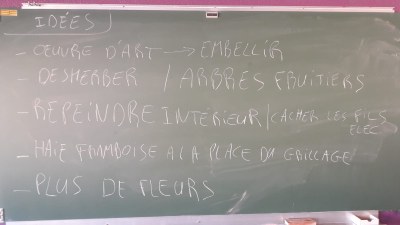 IDÉES
- ŒUVRE D'ART → EMBELLIR
- DESHERBER / ARBRES FRUITIERS
- REPEINDRE INTERIEUR / CACHER LES FILS
ELEC
- HAIE FRAMBOISE A LA PLACE DU GRILLAGE
- PLUS DE FLEURS